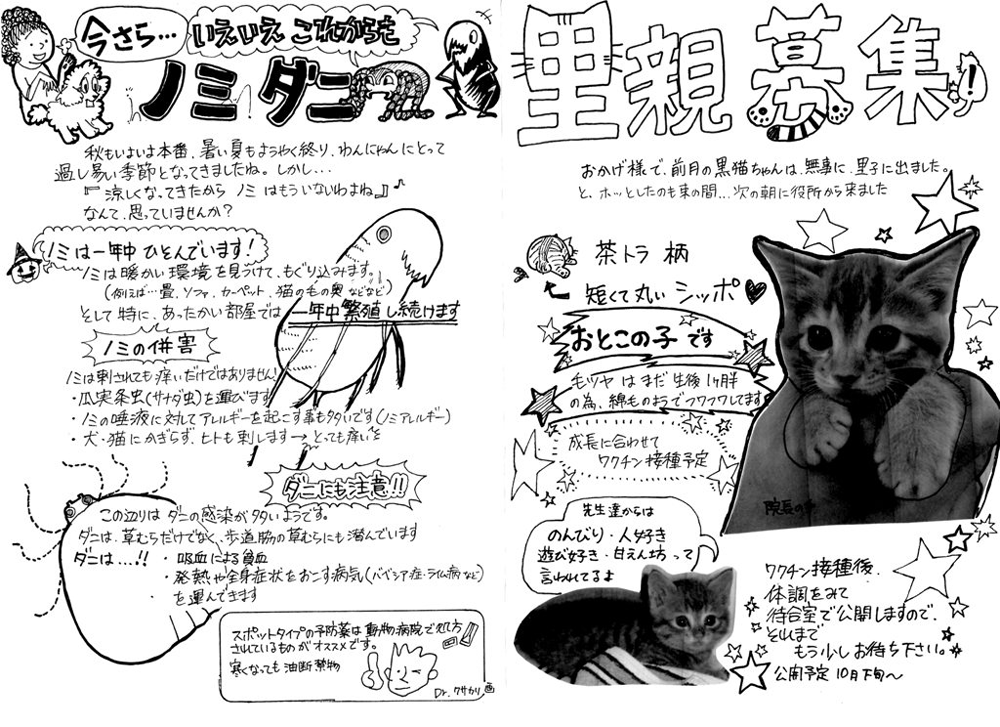 今さら…
いえいえ これからも
ノミ・ダニ
秋もいよいよ本番、暑い夏もようやく終り、わんにゃんにとって
過し易い季節となってきましたね。しかし…
『涼しくなってきたから ノミ はもういないわよね。』♪
なんて、思っていませんか?
ノミは一年中 ひそんでいます!
ノミは暖かい環境を見つけて、もぐり込みます。
(例えば…畳、ソファ、カーペット、猫のもの奥 などなど)
そして特に、あったかい部屋では 一年中繁殖し続けます
ノミの併害
ノミは刺されても痒いだけではありません!
・瓜実条虫(サナダ虫)を運びます
・ノミの唾液に対してアレルギーを起こす事も多いです(ノミアレルギー)
・犬・猫にかぎらず、ヒトも刺します→とっても痒いを
ダニにも注意!!
この辺りは ダニの感染が多いようです。
ダニは、草むらだけでなく、歩道脇の草むらにも潜んでいます
ダニは…!!
・吸血による貧血
・発熱や全身症状をおこす病気(バベシア症・ライム病 など)
を運んできます
スポットタイプの予防薬は 動物病院で処方
されているものがオススメです。
寒くなっても 油断禁物
Dr. クサカリ 画
里親募集!
おかげ様で、前月の黒猫ちゃんは、無事に、里子に出ました。
と、ホッとしたのも束の間…次の朝に役所から来ました
茶トラ 柄
短くて丸い シッポ♥
おとこの子 です
毛ツヤ は まだ 生後 1ヶ月半
の為、綿ものようでフワフワしてます
成長に合わせて
ワクチン接種予定
院長の
先生達からは
のんびり・人好き
遊び好き・甘えん坊 って
言われてるよ
ワクチン接種後、
体調をみて
待合室で公開しますので、
それまで
もう少しお待ち下さい。
公開予定 10月下旬〜